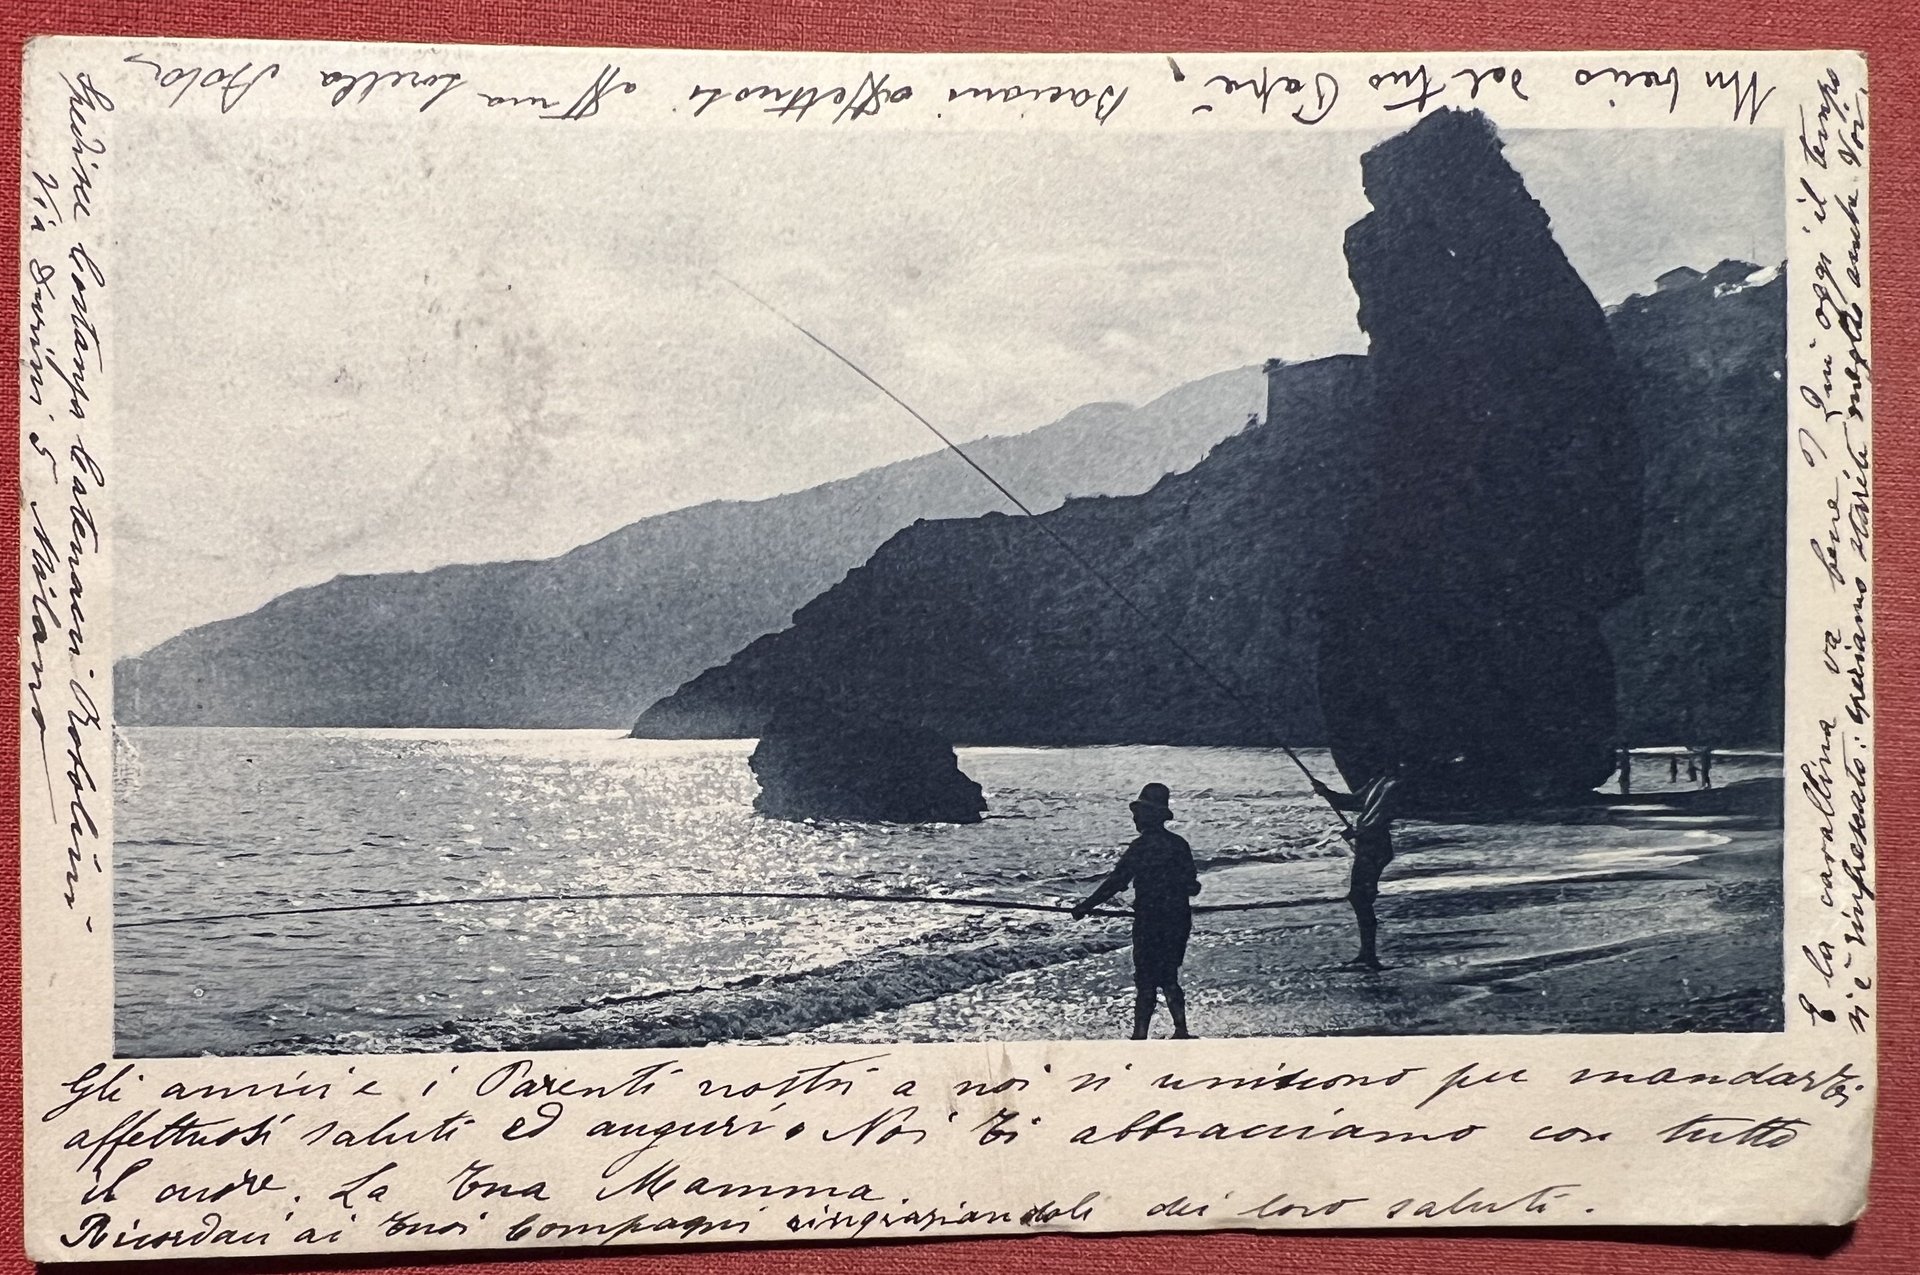 Gli amici e i Parenti nostri a noi si uniscono per mandarti
affettuosi saluti ed auguri. Noi Ti abbracciamo con tutto
il cuore. La tua Mamma.
Ricordaci ai tuoi Compagni ringraziandoli dei loro saluti.
E la cavallina va bene? Qui oggi il tempo
si è rinfrescato: speriamo starete meglio anche Voi.
Un bacio dal tuo Papà
Bacioni affettuosi aff ma sorella
Costanza
Via Durini 5 Milano